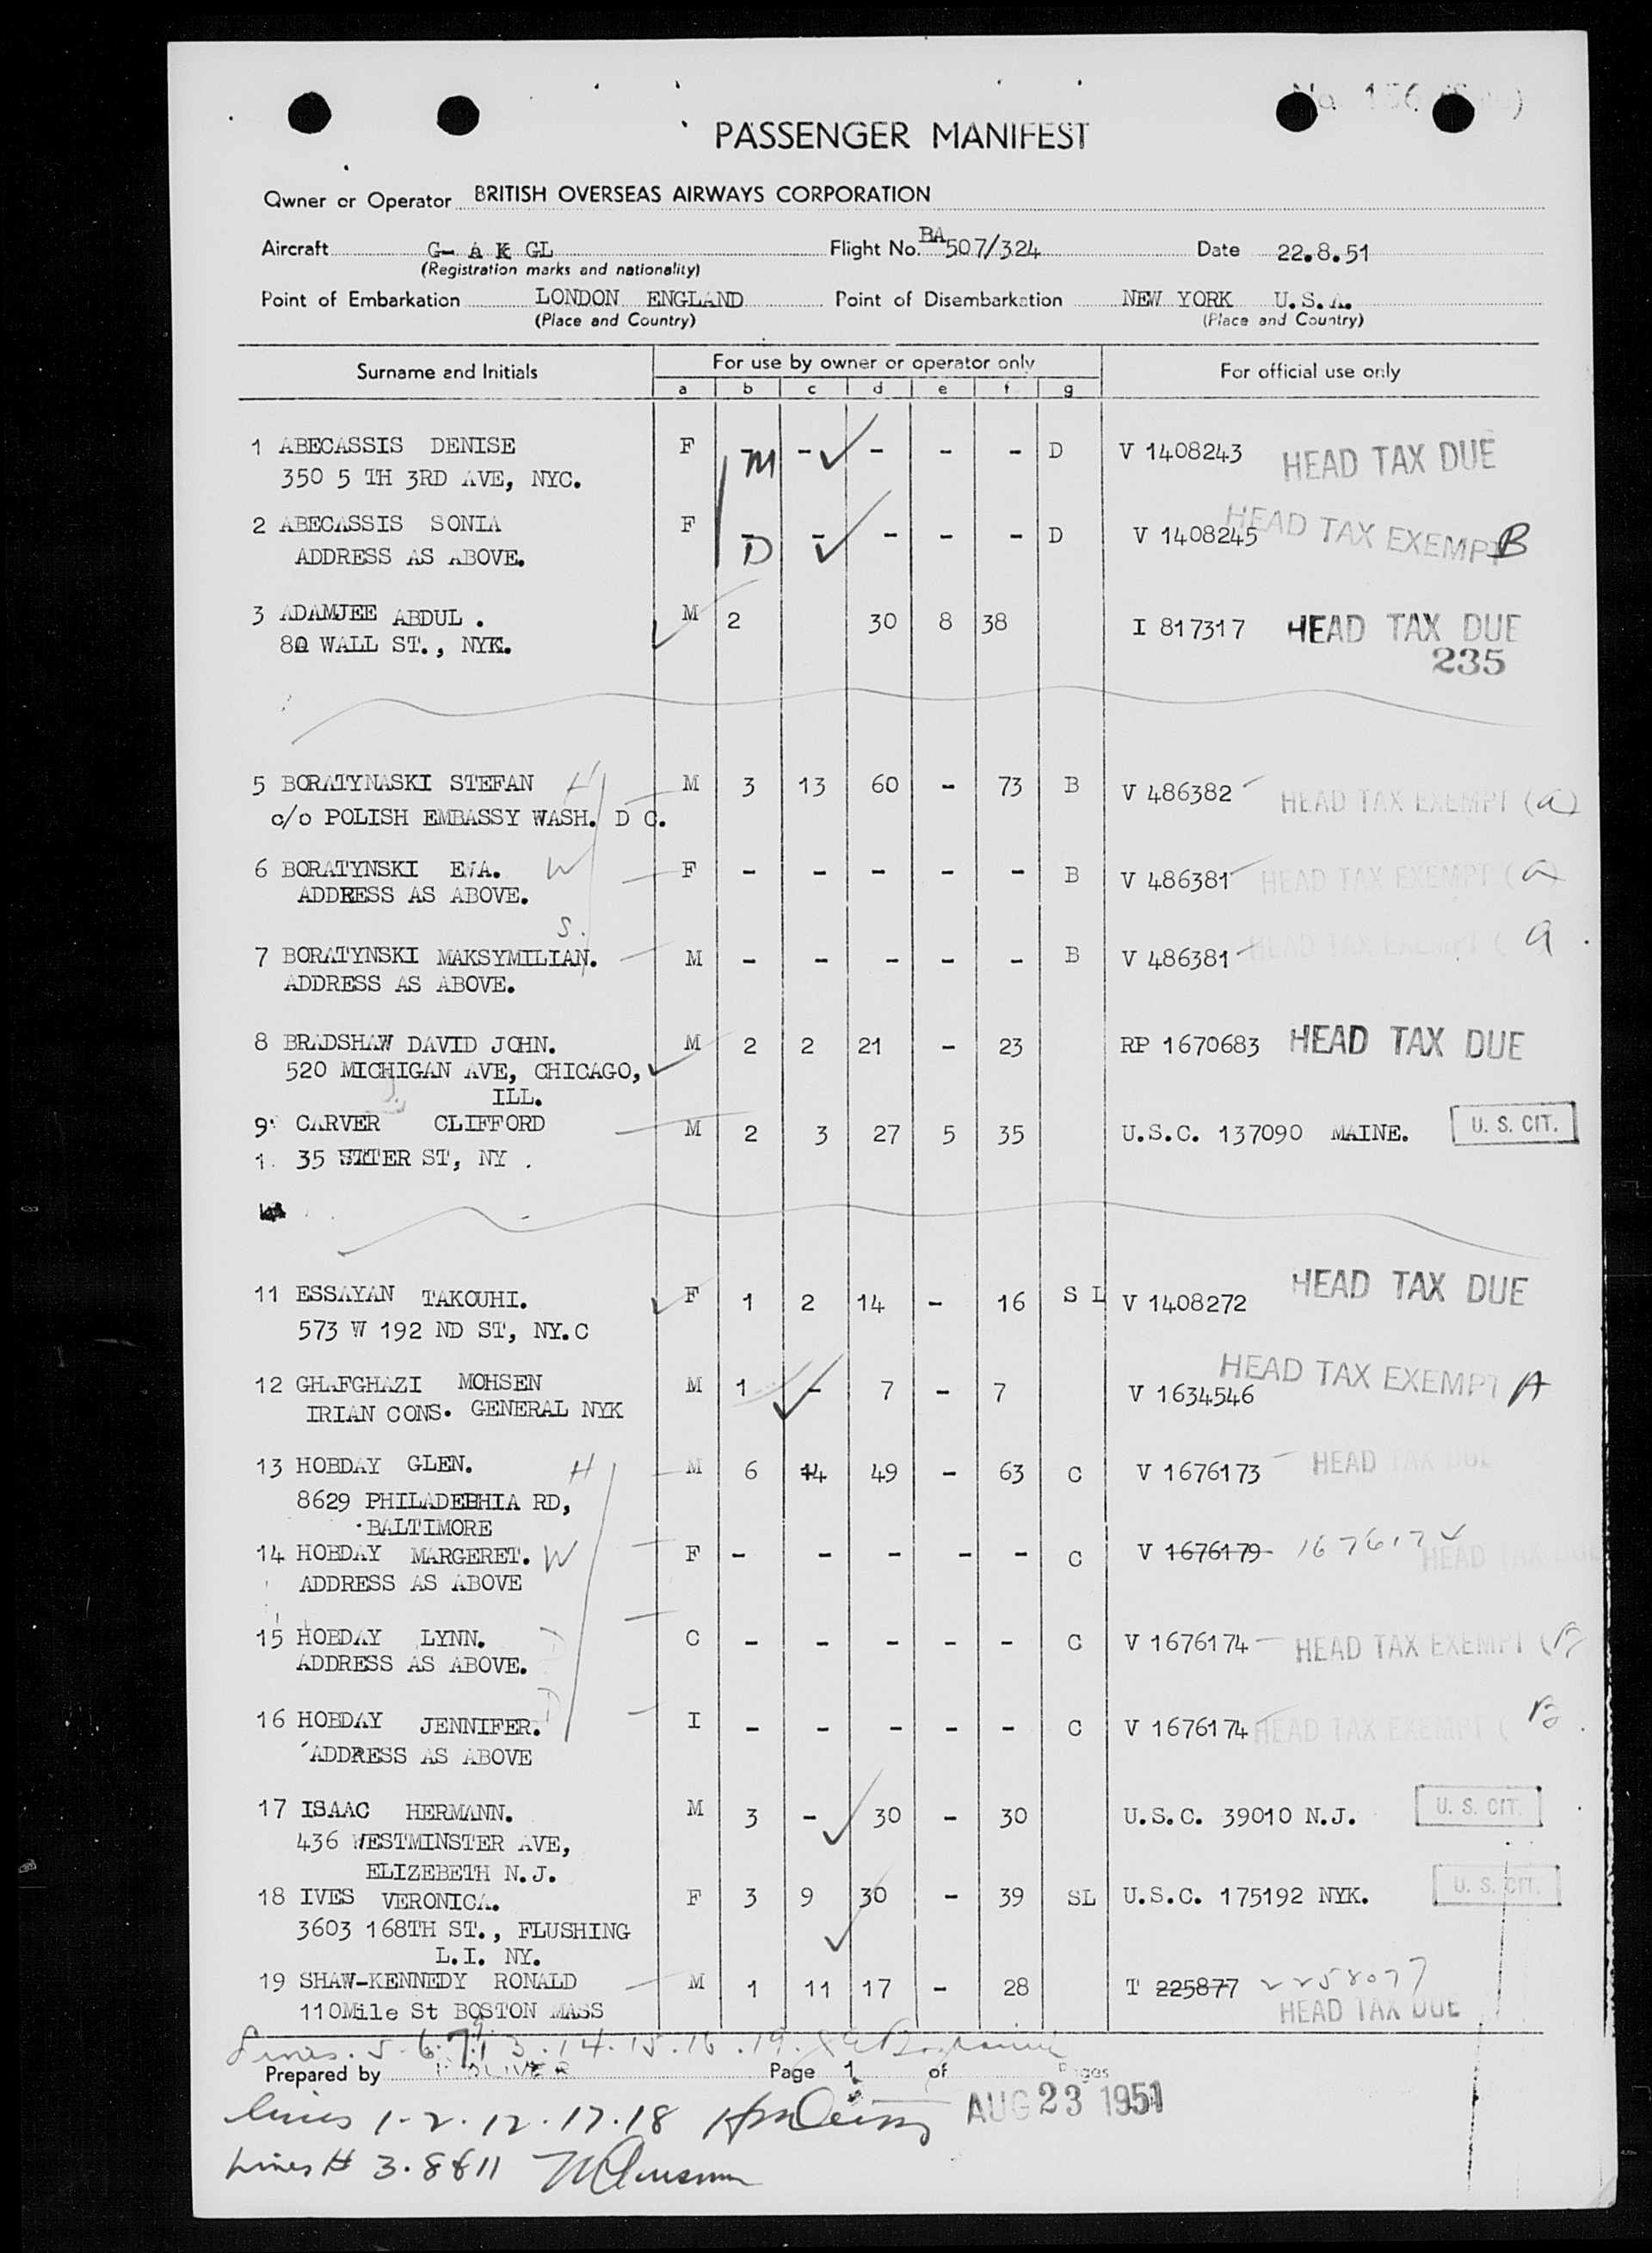 PASSENGER MANIFEST
Owner or Operator BRITISH OVERSEAS AIRWAYS CORPORATION
Aircraft G- A K GL Flight No. BA 507/324 Date 22.8.51
(Registration marks and nationality)
Point of Embarkation LONDON ENGLAND Point of Disembarkation NEW YORK U.S.A.
(Place and Country) (Place and Country)
Surname and Initials For use by owner or operator only For official use only
a b c d e f g
1 ABECASSIS DENISE F M - - - - D V 1408243 HEAD TAX DUE
350 5 TH 3RD AVE, NYC.
2 ABECASSIS SONIA F D - - - - D V 1408245 HEAD TAX EXEMPT B
ADDRESS AS ABOVE.
3 ADAMJEE ABDUL . M 2 30 8 38 I 817317 HEAD TAX DUE
80 WALL ST., NYK. 235
5 BORATYNASKI STEFAN H M 3 13 60 - 73 B V 486382 HEAD TAX EXEMPT (a)
c/o POLISH EMBASSY WASH. D C.
6 BORATYNSKI EWA. W F - - - - - B V 486381 HEAD TAX EXEMPT (a)
ADDRESS AS ABOVE.
S.
7 BORATYNSKI MAKSYMILIAN. M - - - - - B V 486381 HEAD TAX EXEMPT ( a
ADDRESS AS ABOVE.
8 BRADSHAW DAVID JOHN. M 2 2 21 - 23 RP 1670683 HEAD TAX DUE
520 MICHIGAN AVE, CHICAGO,
ILL.
9 CARVER CLIFFORD M 2 3 27 5 35 U.S.C. 137090 MAINE. U. S. CIT.
1. 35 ST, NY .
11 ESSAYAN TAKOUHI. F 1 2 14 - 16 S L V 1408272 HEAD TAX DUE
573 W 192 ND ST, NY.C
12 GHAFGHAZI MOHSEN M 1 - 7 - 7 V 1634546 HEAD TAX EXEMPT A
IRIAN CONS. GENERAL NYK
13 HOBDAY GLEN. H M 6 14 49 - 63 C V 1676173 HEAD TAX DUE
8629 PHILADEBHIA RD,
BALTIMORE
14 HOBDAY MARGERET. W F - - - - - C V 1676179 167617 HEAD TAX DUE
ADDRESS AS ABOVE
15 HOBDAY LYNN. C - - - - - C V 1676174 HEAD TAX EXEMPT (B
ADDRESS AS ABOVE.
16 HOBDAY JENNIFER. I - - - - - C V 1676174 HEAD TAX EXEMPT ( B
ADDRESS AS ABOVE
17 ISAAC HERMANN. M 3 - 30 - 30 U.S.C. 39010 N.J. U. S. CIT.
436 WESTMINSTER AVE,
ELIZEBETH N.J.
18 IVES VERONICA. F 3 9 30 - 39 SL U.S.C. 175192 NYK. U. S. CIT.
3603 168TH ST., FLUSHING
L.I. NY.
19 SHAW-KENNEDY RONALD M 1 11 17 - 28 T 225877 2258077
110Mile St BOSTON MASS HEAD TAX DUE
Lines. 5. 6. 7. 9 13. 14. 15. 16. 19.
Prepared by OLIVER Page 1 of Pages
Lines 1-2. 12. 17. 18 AUG 23 1951
Lines # 3. 8 & 11